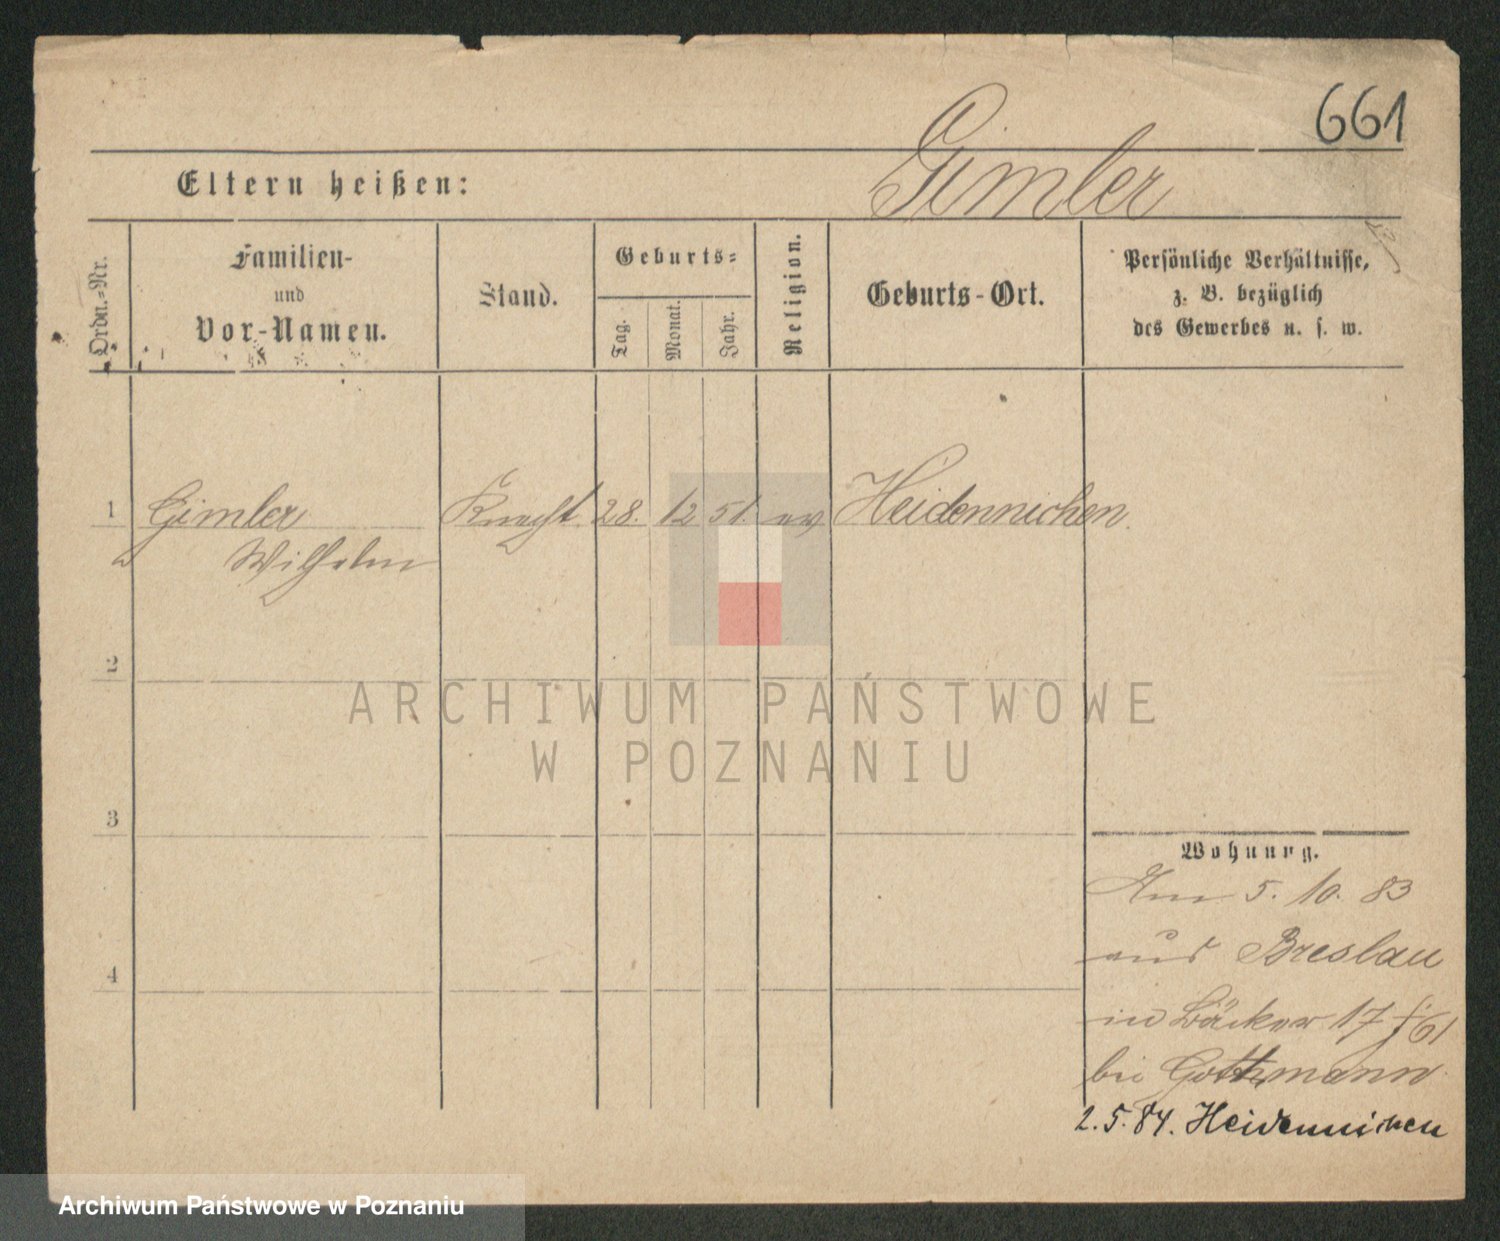 661
Gimler
Eltern heißen:
Ordn.-Nr.
Familien-
und
Vor-Namen.
Stand.
Geburts-
Tag.
Monat.
Jahr.
Religion.
Geburts-Ort.
Persönliche Verhältnisse,
z. B. bezüglich
des Gewerbes u. s. w.
1 Gimler Knecht 28. 12 51. ev Heidennichen.
Wilhelm
2
ARCHIWUM PAŃSTWOWE
W POZNANIU
3
Wohnung.
Am 5. 10. 83
aus Breslau
4
in Bäcker 17
bei Gottmann
2. 5. 84. Heidennichen
Archiwum Państwowe w Poznaniu